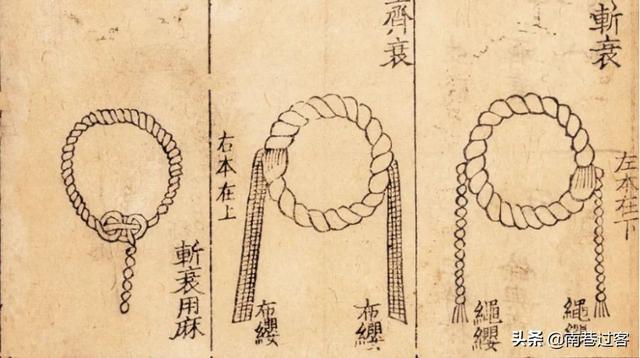 斬衰
左本在下
繩
繩纓
齊衰
布纓
布纓
右本在上
斬衰用麻
头条 @南巷过客